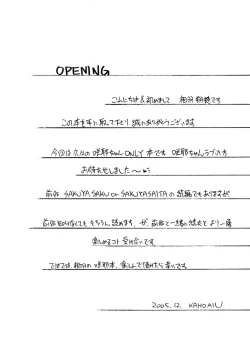 OPENING
こんにちは&初めまして 相羽翔穂です
この本を手に取って下さり 誠にありがとうございます
今回は久々の咲耶ちゃんONLY本です 咲耶ちゃんラブの方
お待たせしました〜
前作 SAKUYA SAKU or SAKUYASAITA の続編でもありますが
前作を知らなくても もちろん読めます が、前作と一緒に読むとより一層
楽しめるコト 受け合いです
ではでは 相羽の咲耶本、楽しんで頂けたら幸いです
2005.12. KAHO AIU